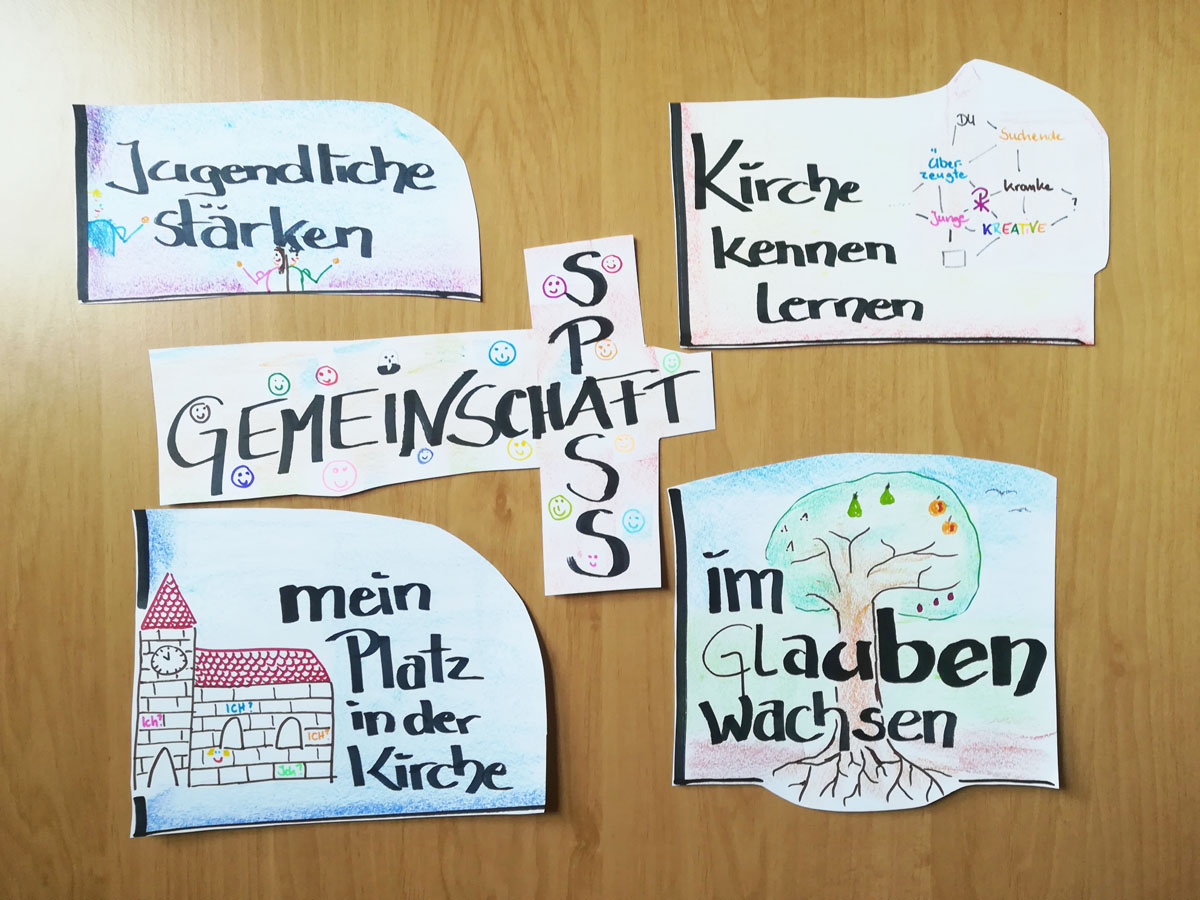 Jugendliche
stärken
Kirche
kennen
lernen
DU
Suchende
Über-
zeugte
Kranke
Junge
?
KREATIVE
GEMEINSCHAFT
SPASS
mein
Platz
in der
Kirche
Ich?
ICH?
ICH?
Ich?
im
Glauben
wachsen